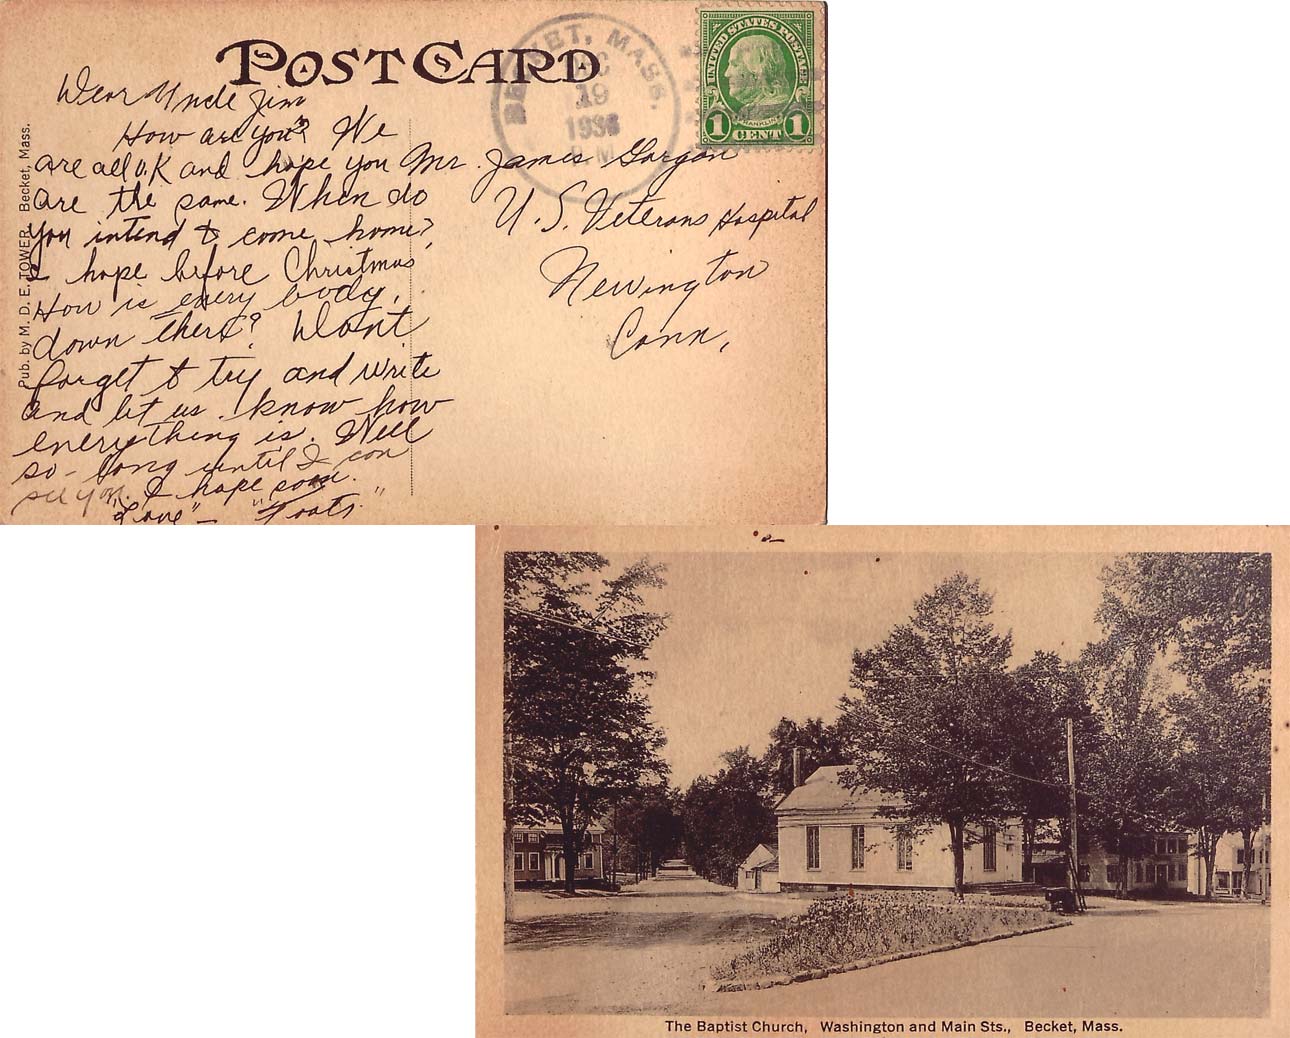 POST CARD
BECKET, MASS.
DEC
19
1936
P.M
UNITED STATES POSTAGE
FRANKLIN
1 CENT 1
Pub. by M. D. E. TOWER, Becket, Mass.
Dear Uncle Jim
How are you? We
are all O.K and hope you
are the same. When do
you intend to come home?
I hope before Christmas
How is every body,
down there? Dont
forget to try and write
and let us know how
everything is. Well
so-long until I can
see you. I hope soon.
"Love" - "Toots"
Mr. James Gorgan
U.S. Veterans Hospital
Newington
Conn,
The Baptist Church, Washington and Main Sts., Becket, Mass.